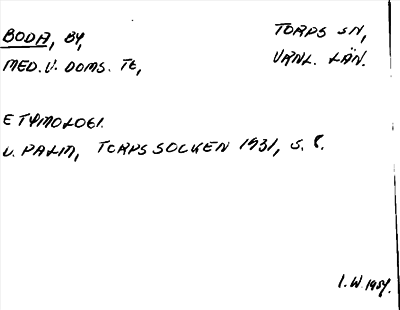 BODA, BY, TORPS SN,
MED. V. DOMS. TG, VRNL. LÄN.
ETYMOLOGI.
V. PALM, TORPS SOCKEN 1931, S. 8.
I. W. 1954.